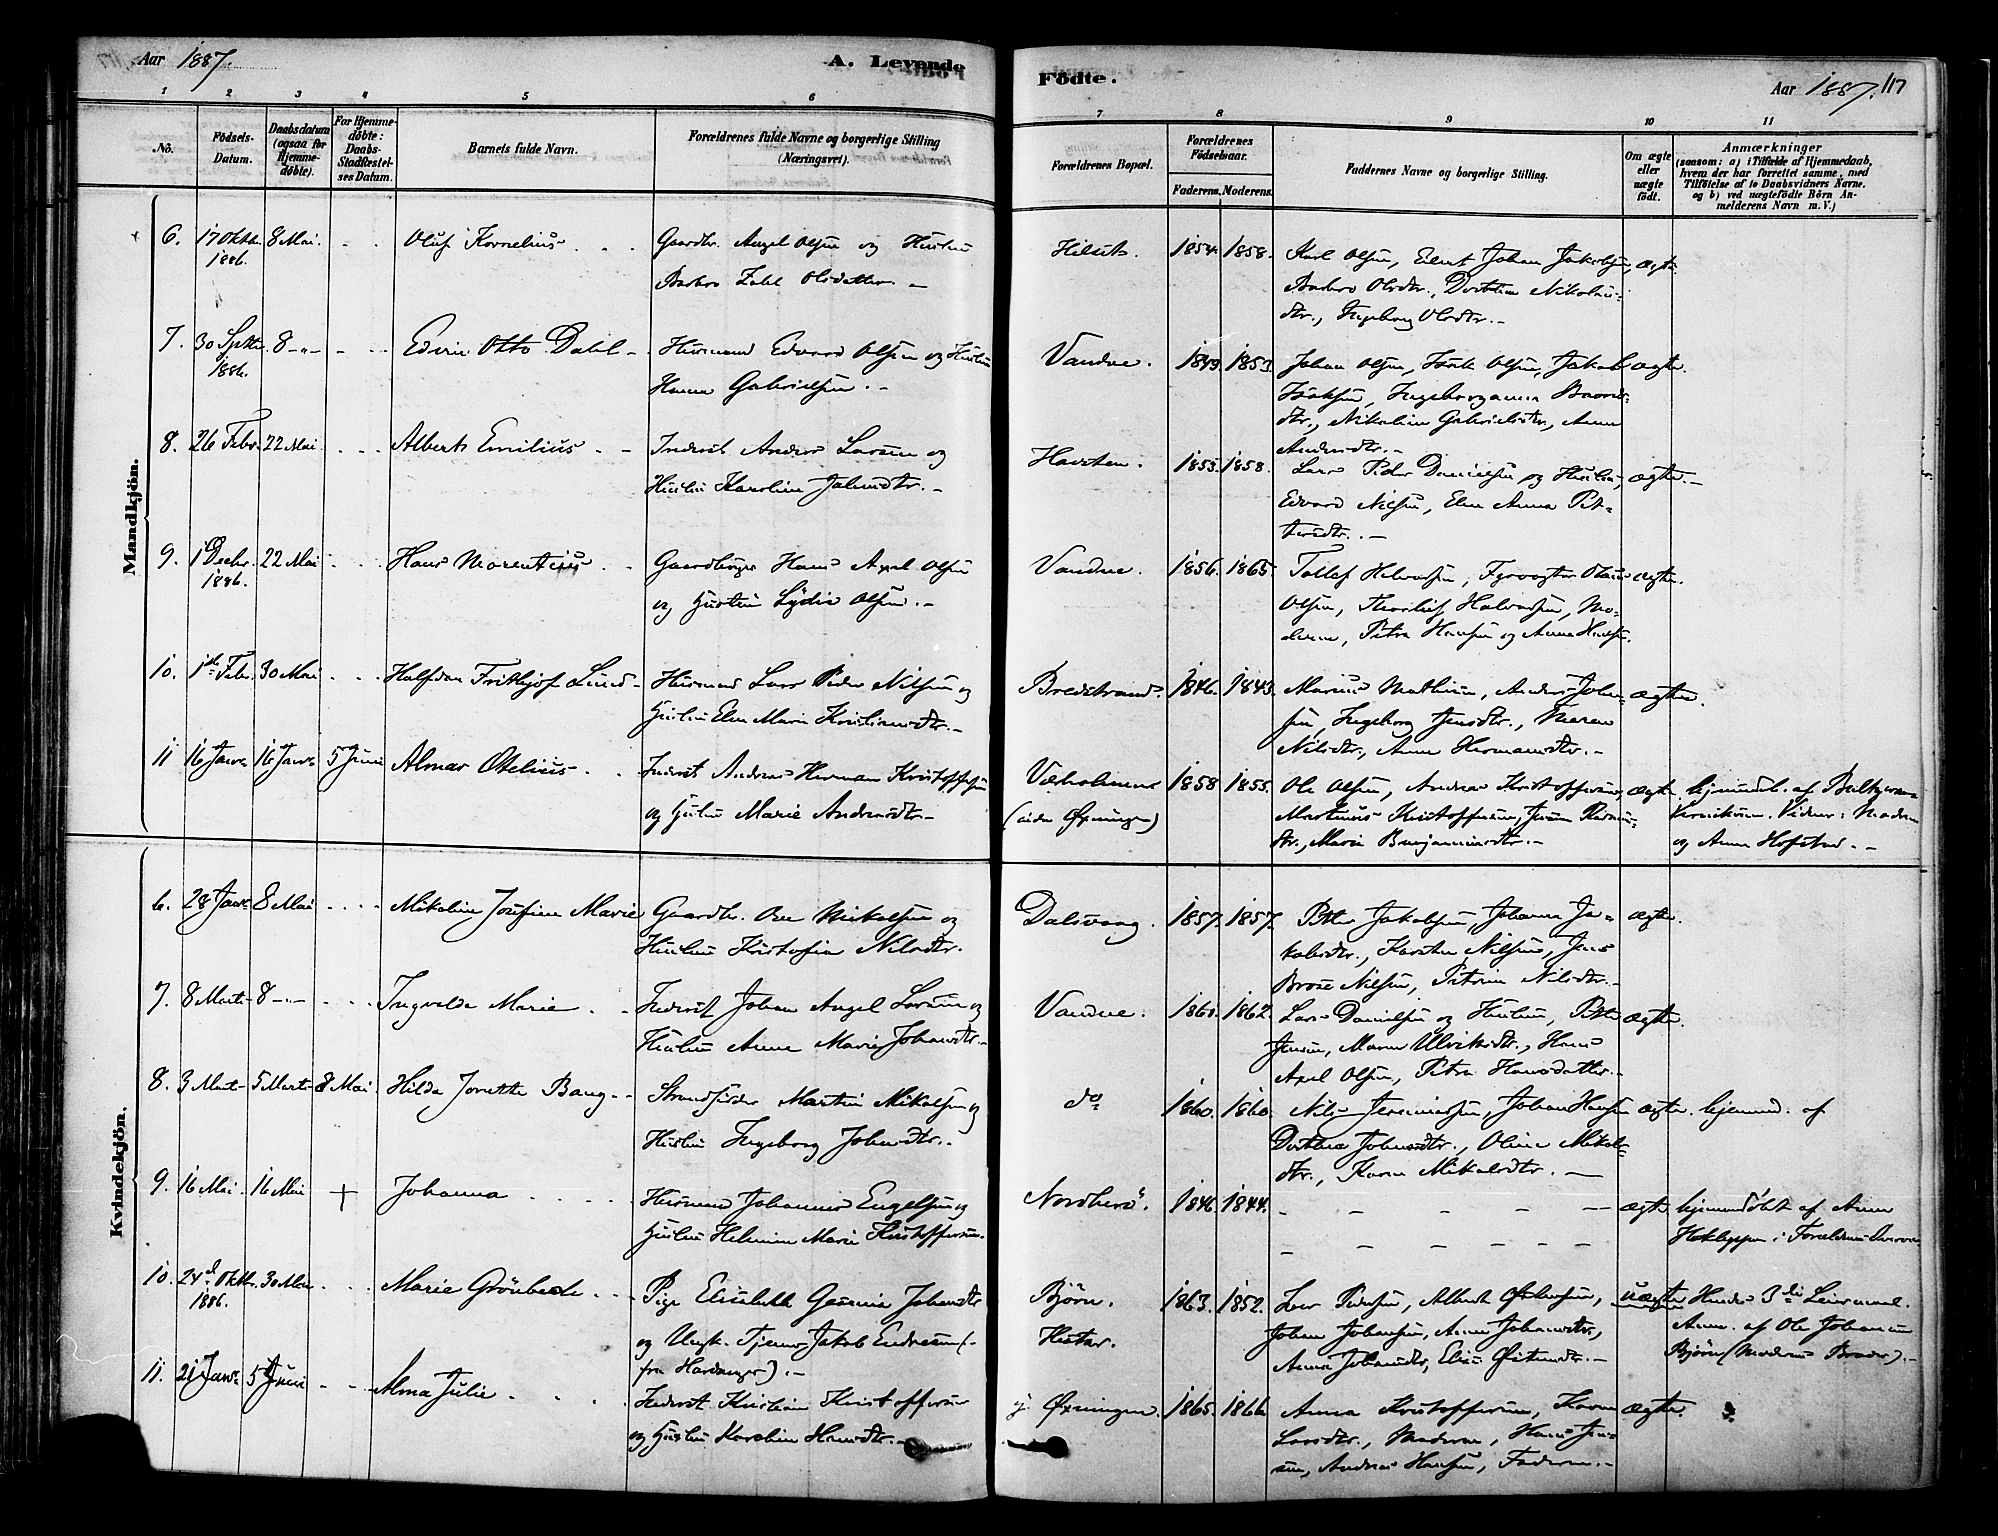 Aar 1887.
A. Levende
Födte.
Aar 1887. 117
1 2 3 4 5 6 7 8 9 10 11
No.
Födsels-Datum.
Daabsdatum (ogsaa for Hjemme-döbte).
For Hjemme-döbte: Daabs-Stadfæstel-ses Datum.
Barnets fulde Navn.
Forældrenes fulde Navne og borgerlige Stilling (Næringsvei).
Forældrenes Bopæl.
Forældrenes Födselsaar.
Faderens. Moderens.
Faddernes Navne og borgerlige Stilling.
Om ægte eller uægte födt.
Anmærkninger
(saasom: a) i Tilfælde af Hjemmedaab,
hvem der har forrettet samme, med
Tilföielse af to Daabsvidners Navne.
og b) ved uægtefödte Börn An-
melderens Navn m. V.)
Mandkjön.
6. 17 Oktbr. 1886. 8 Mai. Oluf Kornelius Gaardbr. Angel Olsen og Hustru
Barbro Zahl Olsdatter. 1854. 1858. Karl Olsen, Eilert Johan Jakobsen, ægte.
Barbro Olsdtr., Dorthea Nikolai-
dtr., Ingeborg Olsdtr.
7. 30 Septbr. 1886. 8 Edvin Otto Dahl Husmand Edvard Olsen og Hustru
Hanna Gabrielsen. Vandve. 1849. 1853. Johan Olsen, Isak Olsen, Jakob ægte.
Isaksen, Ingeborganna
dtr., Nikoline Gabrielsdtr., Anna
Andersdtr.
8. 26 Febr. 22 Mai Albert Emilius Inderst Anders Larsen og
Hustru Karoline Johnsdtr. 1853. 1858. Lars Peder Danielsen og Hustru, ægte.
Edvard Nilsen, Elen Anna Pet-
tersdtr.
9. 1 Decbr. 1886. 22 Mai Hans Morentius Gaardbruger Hans Axel Olsen
og Hustru Lydia Olsen. Vandve. 1856. 1865. Tollef Halvorsen, Fyrvogter Olaus ægte.
Olsen, Thorleif Halvorsen, Mo-
deren, Petra Hansen og Anna Hansen.
10. 1ste Febr. 30 Mai Halfdan Frithjof Lund Husmand Lars Peder Nilsen og
Hustru Elen Maria Kristiansdtr. Bredstrand. 1846. 1843. Marius Mathisen, Anders Johan- ægte.
sen, Ingeborg Jensdtr., Maren
Nilsdtr., Anna Hermansdtr.
11 16 Januar 16 Januar 5 Juni Almar Otelius Inderst Andreas Herman Kristoffersen
og Hustru Marie Andersdtr. (Øxningen) 1858 1855. Ole Olsen, Andreas Kristoffersen, ægte. hjemmed. af
Martinus Kristoffersen, Vidner: Moderen
dtr., Marie Benjaminsdtr. og Anna Hofstad.
Kvindekjön.
6. 28 Januar 8 Mai Mikaline Josefine Marie Gaardbr. Ole Mikalsen og
Hustru Kristofia Nilsdtr. Dalsvaag. 1857. 1857. Petter Jakobsen, Johanna Ja- ægte.
kobsdtr., Karsten Nilsen, Jens
Brose Nilsen, Petrine Nilsdtr.
7. 8 Marts 8 Ingvalda Marie Inderst Johan Angel Larsen og
Hustru Anna Marie Johansdtr. Vandve. 1860. 1862. Lars Danielsen og Hustru, Petter ægte.
Jensen, Maren Ulriksdtr., Hans
Axel Olsen, Petra Hansdatter.
8. 3 Marts 5 Marts 8 Mai Hilda Jonette Bang Strandsidder Martin Mikalsen og
Hustru Ingeborg Johnsdtr. do 1860. 1860. Nils Jeremiassen, Johan Hansen ægte. hjemmed. af
Dorthea Johnsdtr., Oline Mikals-
dtr., Karen Mikalsdtr.
9. 16 Mai. 16 Mai + Johanna Husmand Johannes Engelsen og
Hustru Helmine Marie Kristoffersen. Nordherø. 1846. 1844. ægte hjemmedöbt af Anna
i Forældrenes
10. 24de Oktbr. 1886. 30 Mai Marie Grönbech Pige Elisabeth Johansdtr.
og Ungk. Tjener Jakob Endresen (-
fra Hardanger). Björn. 1863. 1852. Iver Pedersen, Albert uægte Hendes 3die Leiermaal.
Johan Johansen, Anna Johansdtr., Anm. af Ole Johansen
Anna Johansdtr., Björn (Moderens Broder).
11. 21 Januar 5 Juni Alma Julie Inderst Kristian Kristoffersen
og Hustru Karoline Hansdtr. Øxningen. 1865. 1866. Anna Kristoffersen, Karen ægte.
Larsdtr., Moderen, Hans Jen-
sen, Andreas Hansen, Faderen.